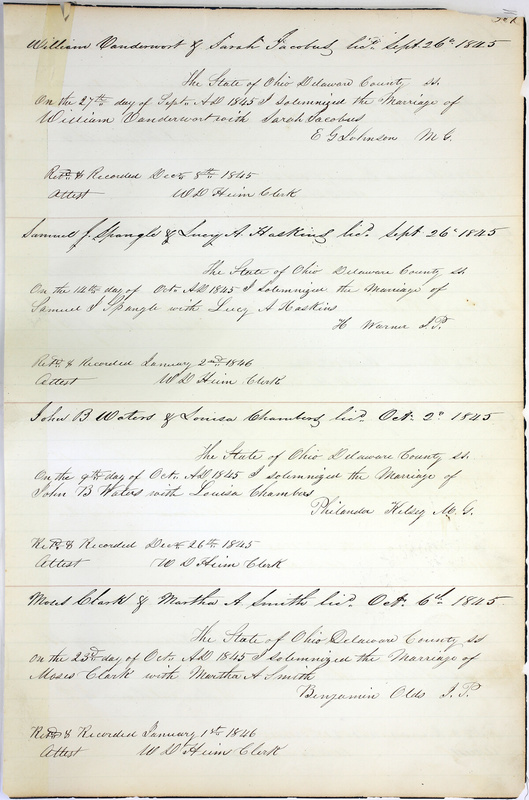 William Vanderwort & Sarah Jacobus lic.d Sept. 26th 1845
The State of Ohio Delaware County ss.
On the 27th day of Sept. A.D 1845 I solemnized the Marriage of
William Vanderwort with Sarah Jacobus
E G Johnson M G.
Ret.d & Recorded Dec. 8th 1845
Attest W D Heim Clerk
Samuel J. Spangle & Lucy A Haskins lic.d Sept. 26th 1845
The State of Ohio Delaware County ss.
On the 14th day of Oct. A.D 1845 I solemnized the Marriage of
Samuel J Spangle with Lucy A Haskins
H Warner J.P.
Ret.d & Recorded January 2nd 1846
Attest W D Heim Clerk
John B Waters & Louisa Chambers lic.d Oct. 2d 1845
The State of Ohio Delaware County ss.
On the 9th day of Oct. A.D 1845 I solemnized the Marriage of
John B Waters with Louisa Chambers
Philander Kelsey M. G.
Ret.d & Recorded Dec. 26th 1845
Attest W D Heim Clerk
Moses Clark & Martha A Smith lic.d Oct. 6th 1845
The State of Ohio Delaware County ss
On the 23rd day of Oct. A.D 1845 I solemnized the Marriage of
Moses Clark with Martha A Smith
Benjamin Olds J.P.
Ret.d & Recorded January 1st 1846
Attest W D Heim Clerk